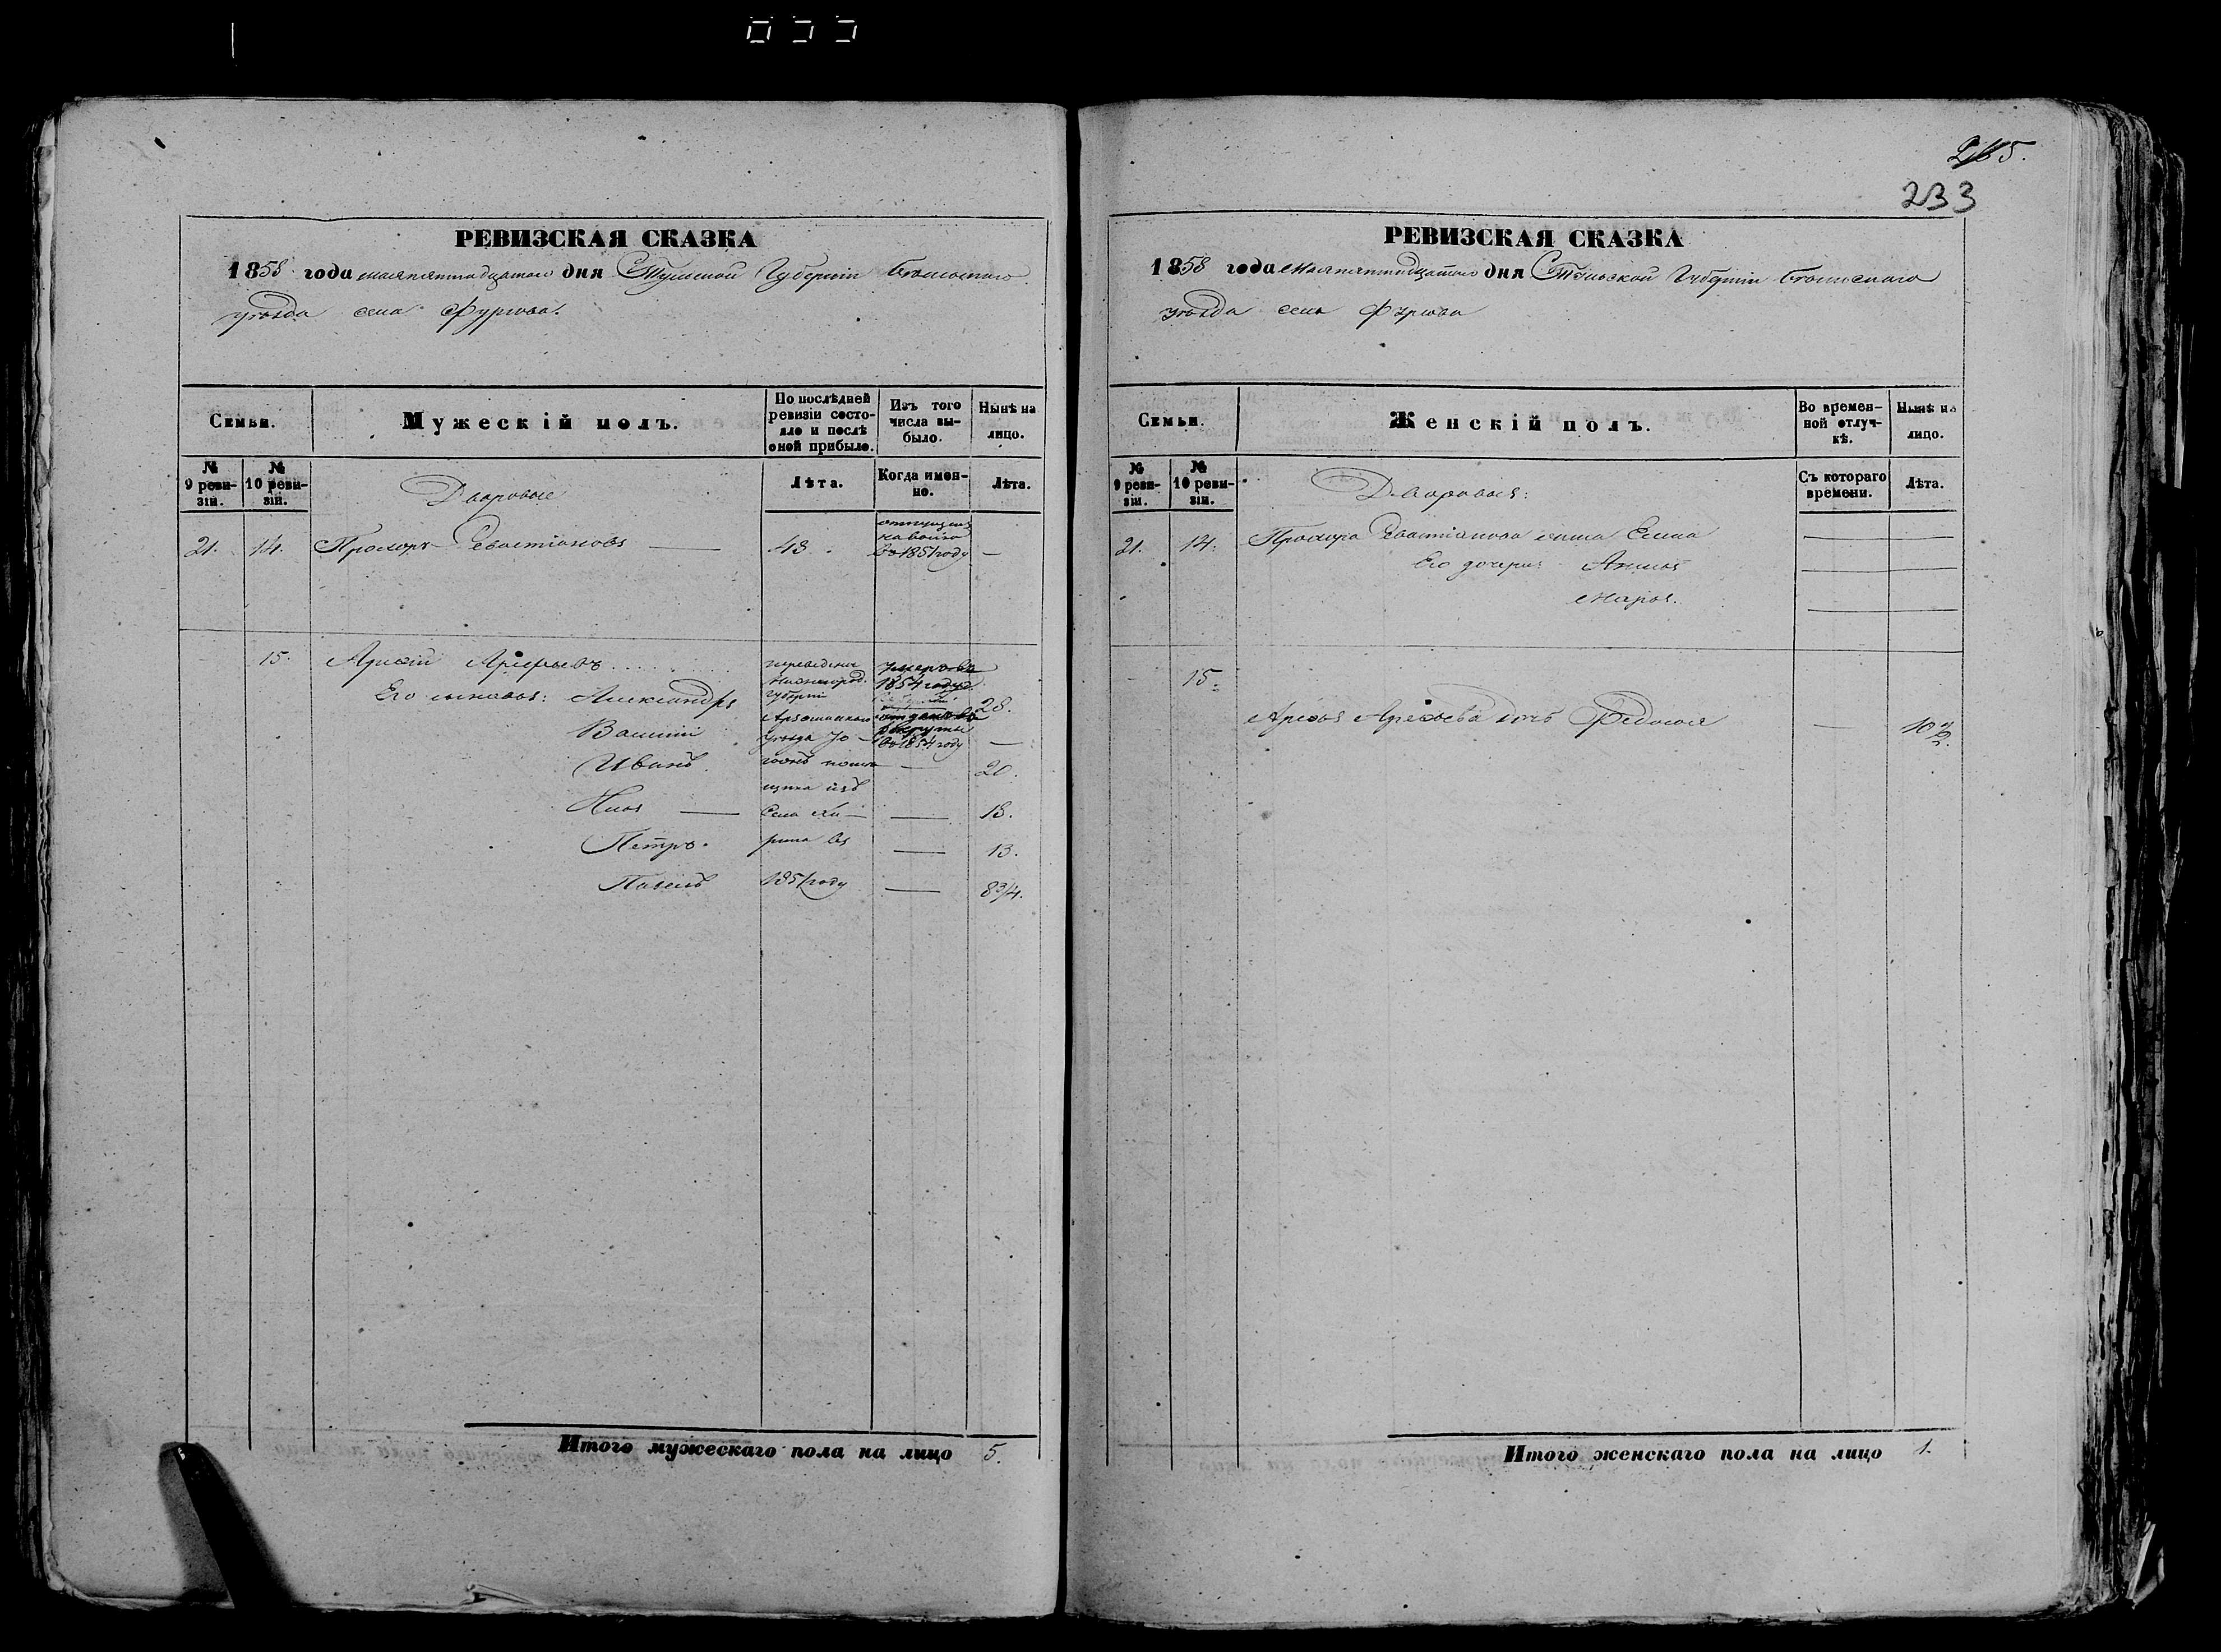 215.
233
РЕВИЗСКАЯ СКАЗКА
1858 года мая пятнадцатого дня Тульской Губерніи
уѣзда села Фурсова.
Семьи.
Мужескій полъ.
По послѣдней ревизіи состояло и послѣ оной прибыло.
Изъ того числа выбыло.
Нынѣ на лицо.
№ 9 ревизіи.
№ 10 ревизіи.
Дворовые
Лѣта.
Когда именно.
Лѣта.
21. 14. Прохоръ Севастіановъ — 48. отпущенъ на волю во 1851 году —
15. Арефьевъ переведены Нижегород. губерніи умеръ во 1854 году
Его сыновья: Александръ 28.
Василій уѣзда отданъ въ рекруты во 1854 году —
Иванъ — 20.
щика изъ
Илья — села — 18.
Петръ. рина въ — 13.
Павелъ 1851 году — 8 3/4.
Итого мужескаго пола на лицо 5.
РЕВИЗСКАЯ СКАЗКА
1858 года мая пятнадцатого дня Тульской Губерніи
уѣзда села Фурсова
Семьи.
Женскій полъ.
Во временной отлучкѣ.
Нынѣ на лицо.
№ 9 ревизіи.
№ 10 ревизіи.
Дворовыя:
Съ котораго времени.
Лѣта.
21. 14. Прохора Севастіанова жена Елена — —
Его дочери: Анна — —
Марья. — —
15.
Арефьева дочь Федосья — 10 1/2.
Итого женскаго пола на лицо 1.